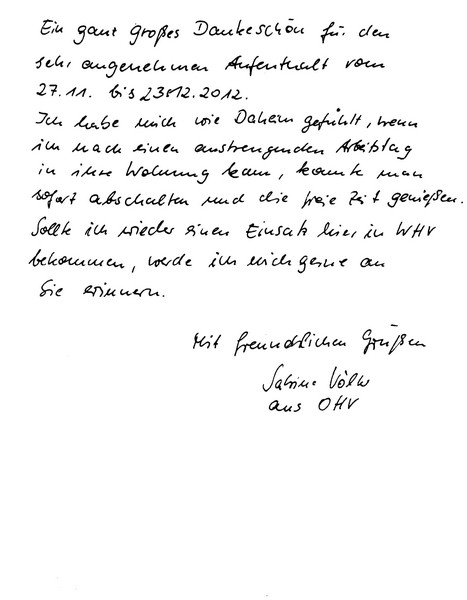 Ein ganz großes Dankeschön für den
sehr angenehmen Aufenthalt vom
27.11. bis 23.12.2012.
Ich habe mich wie Daheim gefühlt, wenn
ich nach einen anstrengenden Arbeitstag
in ihre Wohnung kam, konnte man
sofort abschalten und die freie Zeit genießen.
Sollte ich wieder einen Einsatz hier in WHV
bekommen, werde ich mich gerne an
Sie erinnern.
Mit freundlichen Grüßen
Sabine Völk
aus OHV